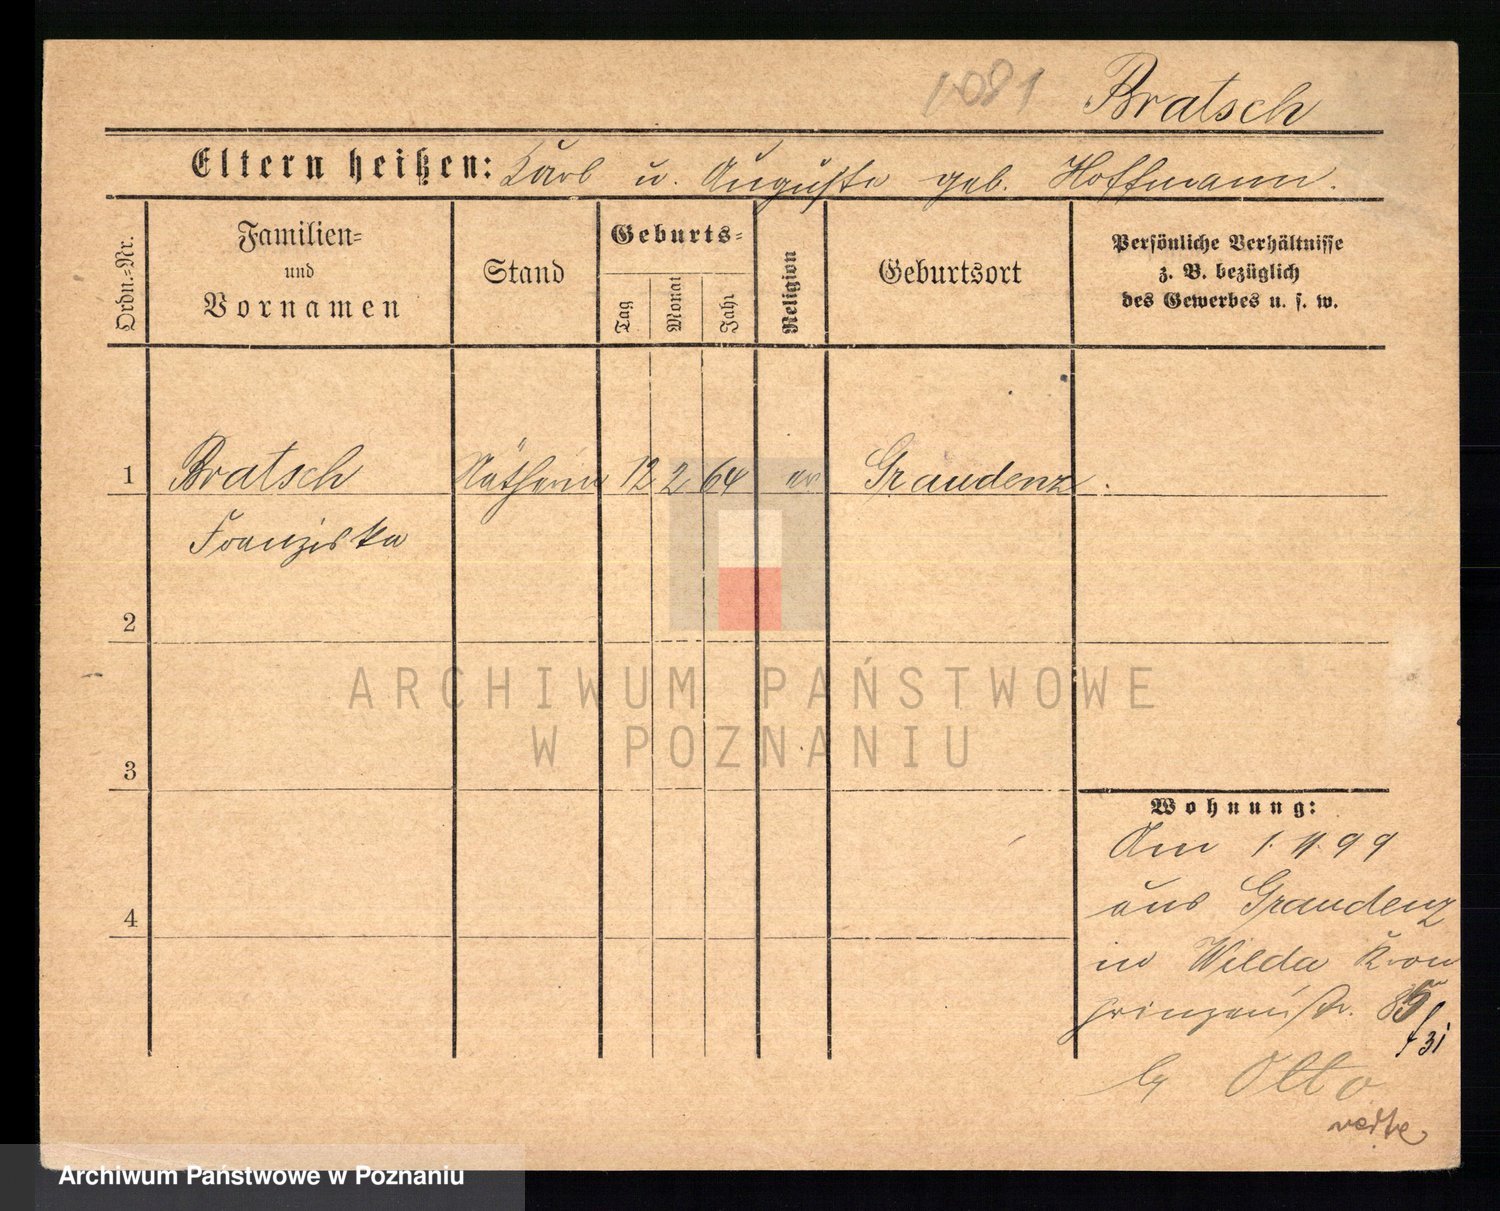 1081 Bratsch
Eltern heißen: Karl u. Auguste geb. Hoffmann.
Ordn.=Nr.
Familien=
und
Vornamen
Stand
Geburts=
Tag
Monat
Jahr
Religion
Geburtsort
Persönliche Verhältnisse
z. B. bezüglich
des Gewerbes u. s. w.
1 Bratsch Nätherin 12 2 64 ev Graudenz.
Franziska
2
ARCHIWUM PAŃSTWOWE
W POZNANIU
3
Wohnung:
Am 1. 4. 99
aus Graudenz
4
in Wilda Kron
prinzenstr. 85
b/ Otto
Archiwum Państwowe w Poznaniu